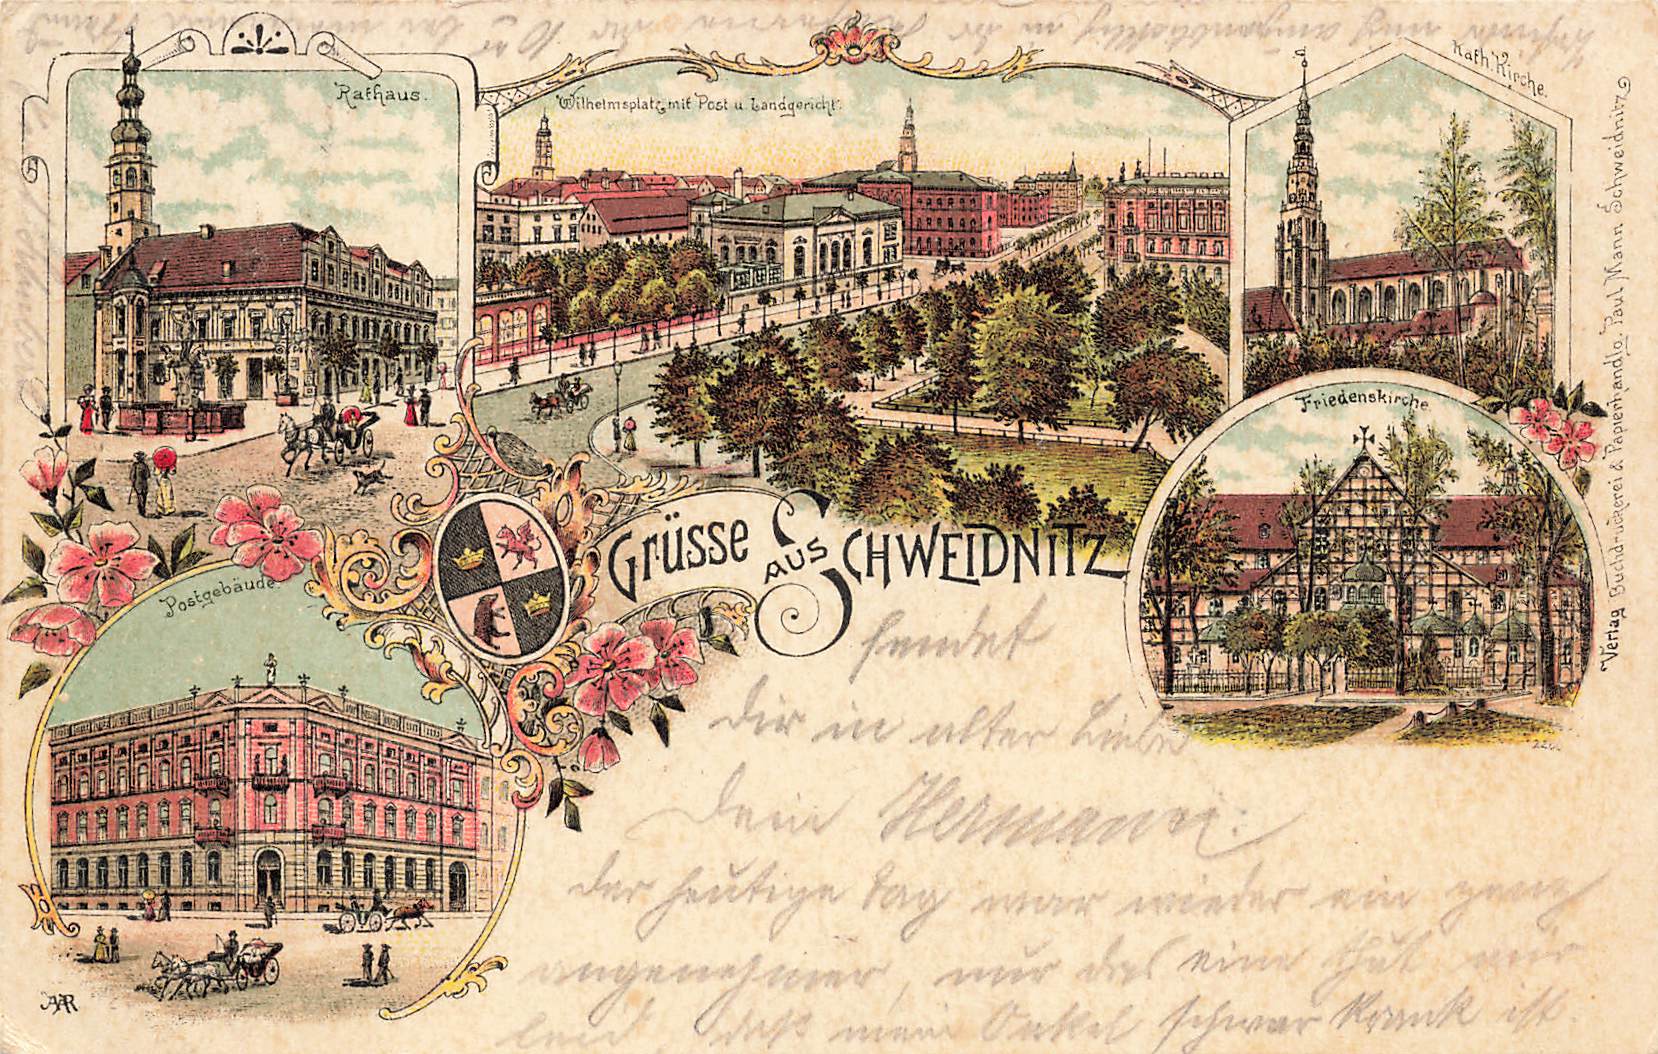 Rathaus.
Wilhelmsplatz mit Post u. Landgericht.
Kath. Kirche.
Friedenskirche.
Postgebäude.
Grüsse aus Schweidnitz
Verlag Buchdruckerei & Papierhandlg. Paul Mann, Schweidnitz
sendet
Dir in alter Liebe
Dein Hermann.
Der heutige Tag war wieder ein ganz
angenehmer, nur das eine thut mir
leid, daß mein Onkel schwer krank ist.